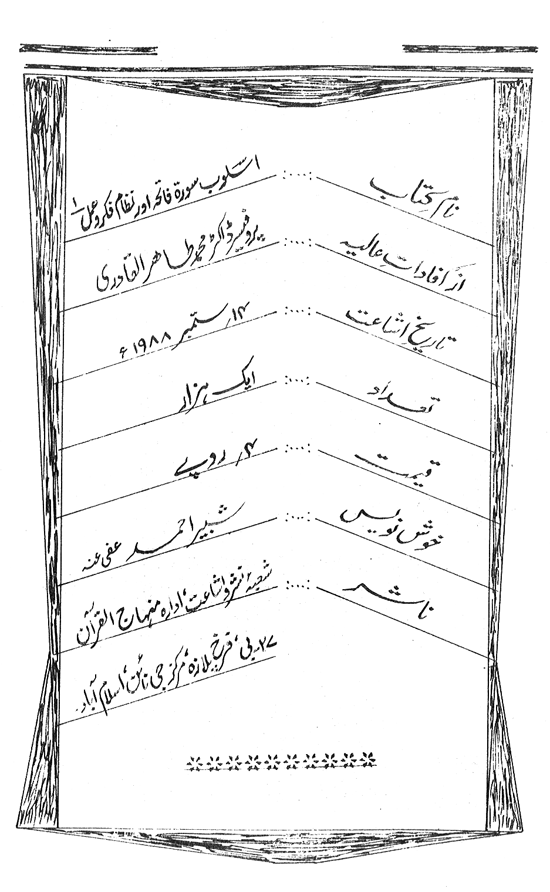 نام کتاب :...: اسلوب سورۃ فاتحہ اور نظام فکر و عمل ۱
از افاداتِ عالیہ :...: پروفیسر ڈاکٹر محمد طاہر القادری
تاریخ اشاعت :...: ۱۴؍ ستمبر ۱۹۸۸ء
تعداد :...: ایک ہزار
قیمت :...: ۴؍ روپے
خوش نویس :...: شبیر احمد عفی عنہ
ناشر :...: شعبۂ نشر و اشاعت، ادارہ منہاج القرآن
۲۷۔ بی، فرخ پلازہ، مرکز جی نائن، اسلام آباد۔